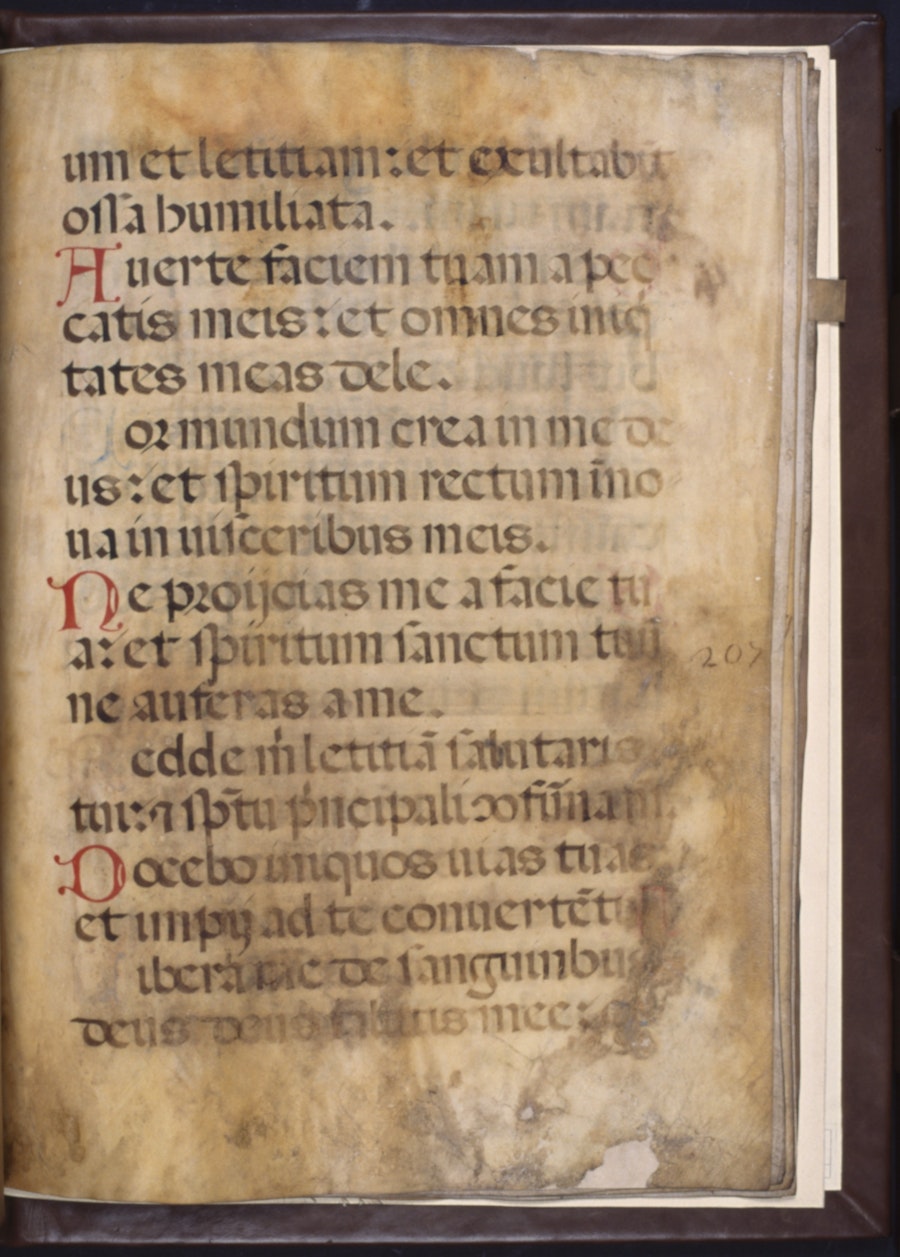 um et letitiam : et exultabūt
ossa humiliata.
Auerte faciem tuam a pec
catis meis : et omnes iniq
tates meas dele.
or mundum crea in me de
us : et spiritum rectum īno
ua in uisceribus meis.
Ne proijcias me a facie tu
a : et spiritum sanctum tuū
ne auferas a me.
edde m̄ letitiā salutaris
tui : ⁊ sp̄tu
Docebo iniquos uias tuas
et impij ad te
ibera me de sanguinibus
deus deus salutis mee :
207